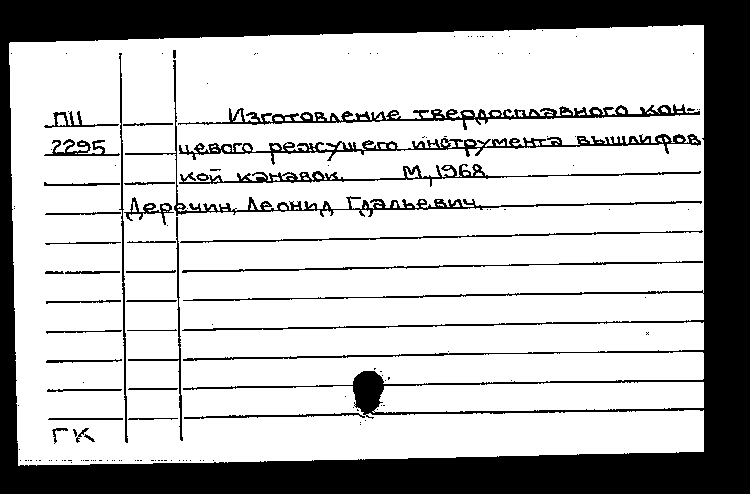 П11 Изготовление твердосплавного кон-
2295 цевого режущего инструмента вышлифов-
кой канавок. М., 1968.
Деречин, Леонид Гдальевич.
ГК